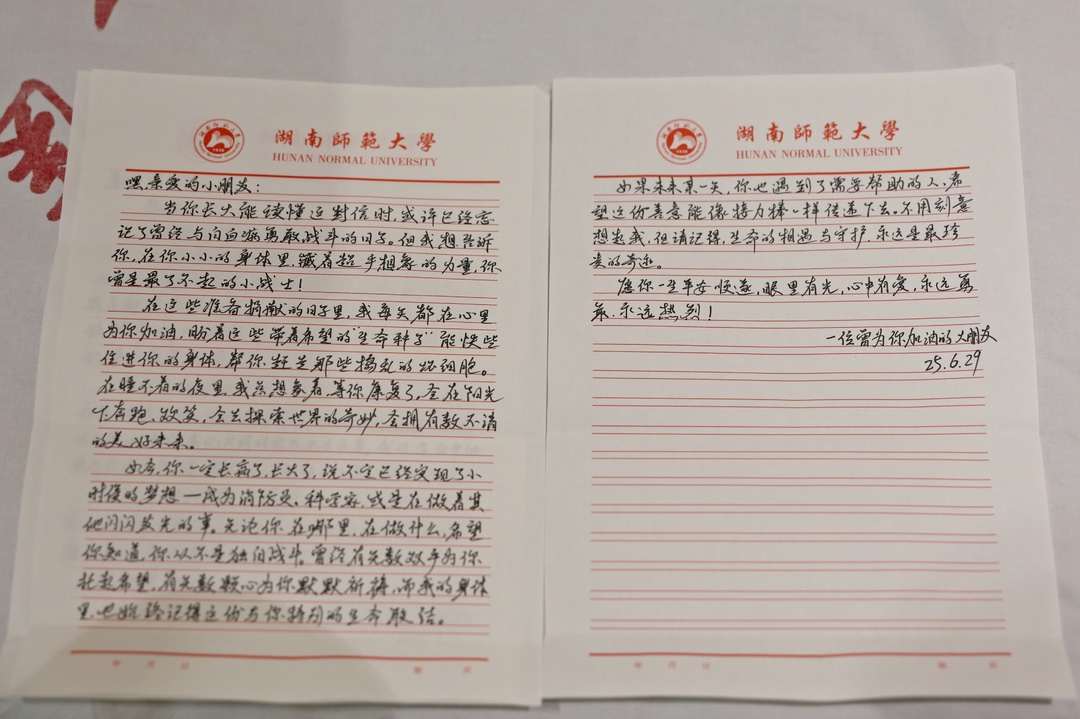 湖南師範大學
HUNAN NORMAL UNIVERSITY
嘿,亲爱的小朋友:
当你长大能读懂这封信时,或许已经忘
记了曾经与白血病勇敢战斗的日子。但我想告诉
你,在你小小的身体里,藏着超乎想象的力量,你
曾是最了不起的小战士!
在这些准备捐献的日子里,我每天都在心里
为你加油,盼着这些带着希望的“生命种子”能快些
住进你的身体,帮你赶走那些捣乱的坏细胞。
在睡不着的夜里,我总想象着,等你康复了,会在阳光
下奔跑、欢笑,会去探索世界的奇妙,会拥有数不清
的美好未来。
如今,你一定长高了,长大了,说不定已经实现了小
时候的梦想—成为消防员、科学家,或是在做着其
他闪闪发光的事。无论你在哪里,在做什么,希望
你知道,你从不是独自战斗。曾经有无数双手为你
托起希望,有无数颗心为你默默祈祷,而我的身体
里,也始终记得这份与你特别的生命联结。
年 月 日
第 页
湖南師範大學
HUNAN NORMAL UNIVERSITY
如果未来某一天,你也遇到了需要帮助的人,希
望这份善意能像接力棒一样传递下去。不用刻意
想起我,但请记得,生命的相遇与守护,永远是最珍
贵的奇迹。
愿你一生平安顺遂,眼里有光,心中有爱,永远勇
敢,永远热烈!
一位曾为你加油的大朋友
25.6.29
年 月 日
第 页